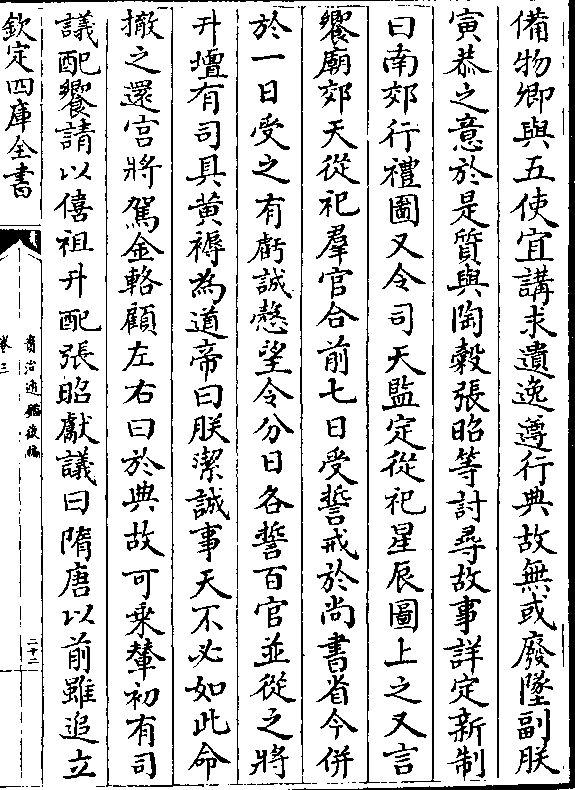 備物卿與五使宜講求遺逸遵行典故無或廢墜副朕
寅恭之意於是質與陶穀張昭等討尋故事詳定新制
曰南郊行禮圖又令司天監定從祀星辰圖上之又言
饗廟郊天從祀羣官合前七日受誓戒於尚書省今併
於一日受之有虧誠慤望令分日各誓百官並從之將
升壇有司具黄褥為道帝曰朕潔誠事天不必如此命
撤之還宫將駕金輅顧左右曰於典故可乘輦初有司
議配饗請以僖祖升配張昭獻議曰隋唐以前雖追立
欽定四庫全書
資治通鑑後編
卷三
二十二